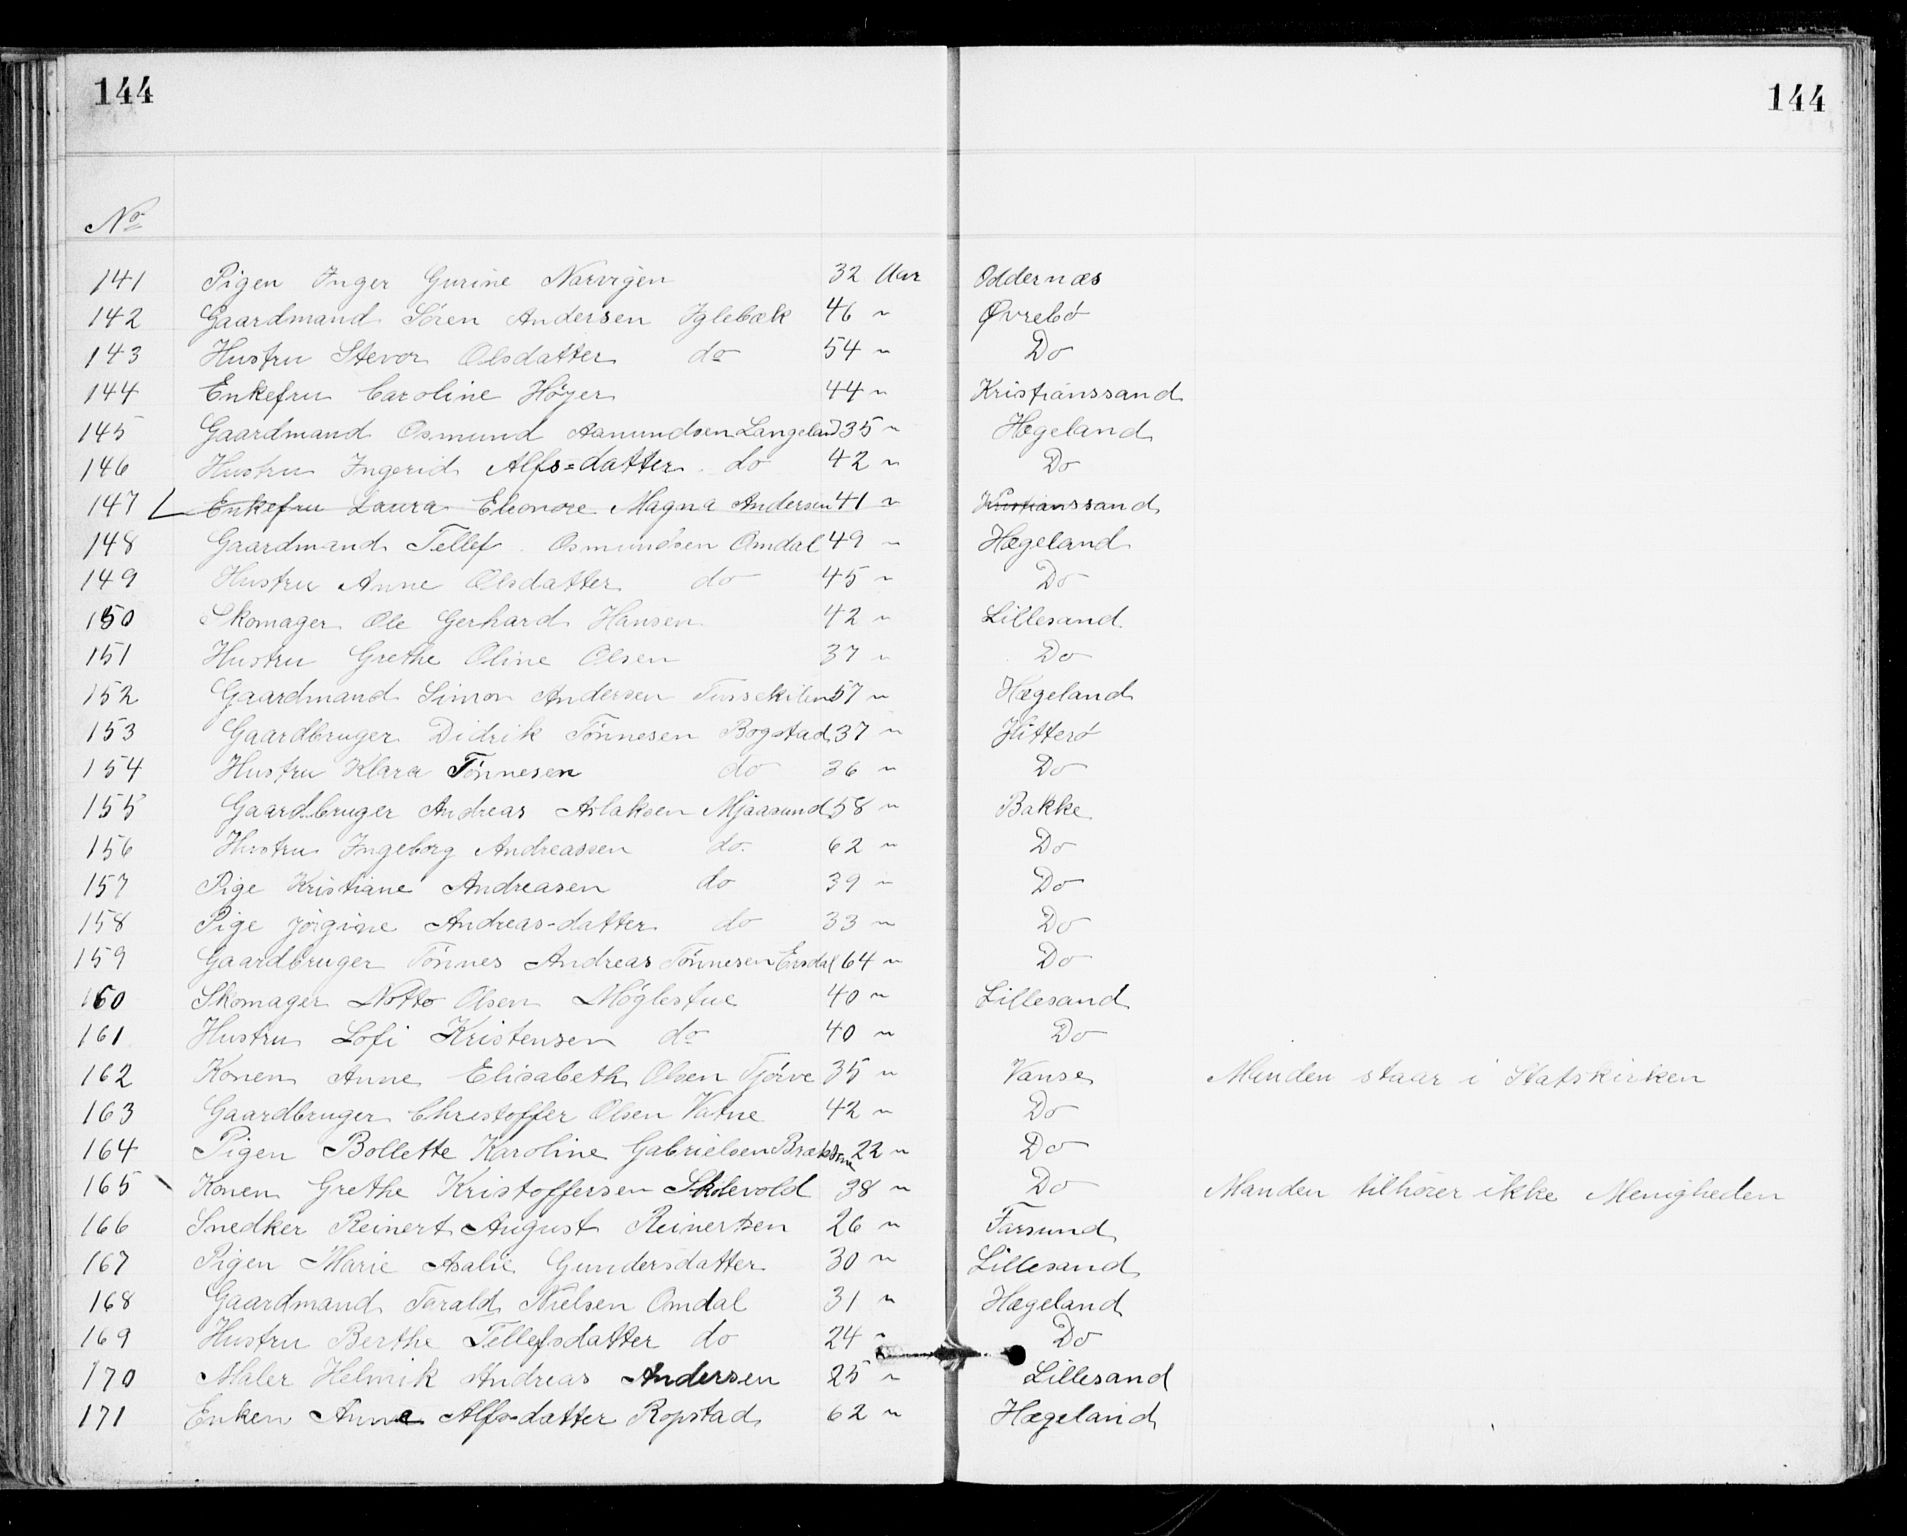 144 144
No
141 Pigen Inger Gurine Narvigen 32 Aar Oddernæs
142 Gaardmand Søren Andersen Iglebæk 46 " Øvrebø
143 Hustru Stevor Olsdatter do 54 " Do
144 Enkefru Caroline Høyer 44 " Kristianssand
145 Gaardmand Osmund Aanundsen Langeland 35 " Hægeland
146 Hustru Ingerid Alfs=datter do 42 " Do
147 Enkefru Laura Eleonore Magna Andersen 41 " Kristianssand
148 Gaardmand Tellef Osmundsen Omdal 49 " Hægeland
149 Hustru Anne Olsdatter do 45 " Do
150 Skomager Ole Gerhard Hansen 42 " Lillesand
151 Hustru Grethe Oline Olsen 37 " Do
152 Gaardmand Simon Andersen 57 " Hægeland
153 Gaardbruger Didrik Tønnesen Bogstad 37 " Hitterø
154 Hustru Klara Tønnesen do 36 " Do
155 Gaardbruger Andreas Aslaksen Mjaasund 58 " Bakke
156 Hustru Ingeborg Andreassen do. 62 " Do
157 Pige Kristiane Andreasen do 39 " Do
158 Pige Jørgine Andreas-datter do 33 " Do
159 Gaardbruger Tønnes Andreas Tønnesen Ersdal 64 " Do
160 Skomager Notto Olsen Møglestue 40 " Lillesand
161 Hustru Sofi Kristensen do 40 " Do
162 Konen Anne Elisabeth Olsen Tjørve 35 " Vanse Manden staar i Statskirken
163 Gaardbruger Christoffer Olsen Vatne 42 " Do
164 Pigen Bollette Karoline Gabrielsen 22 " Do
165 Konen Grethe Kristoffersen Skolevold 38 " Do Manden tilhører ikke Menigheden
166 Snedker Reinert August Reinertsen 26 " Farsund
167 Pigen Marie Asalie Gundersdatter 30 " Lillesand
168 Gaardmand Torald Nielsen Omdal 31 " Hægeland
169 Hustru Berthe Tellefsdatter do 24 " Do
170 Maler Helmik Andreas Andersen 25 " Lillesand
171 Enken Anne Alfs-datter Ropstad 62 " Hægeland